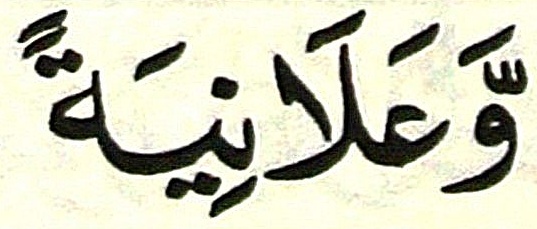 وَّعَلَانِيَةً